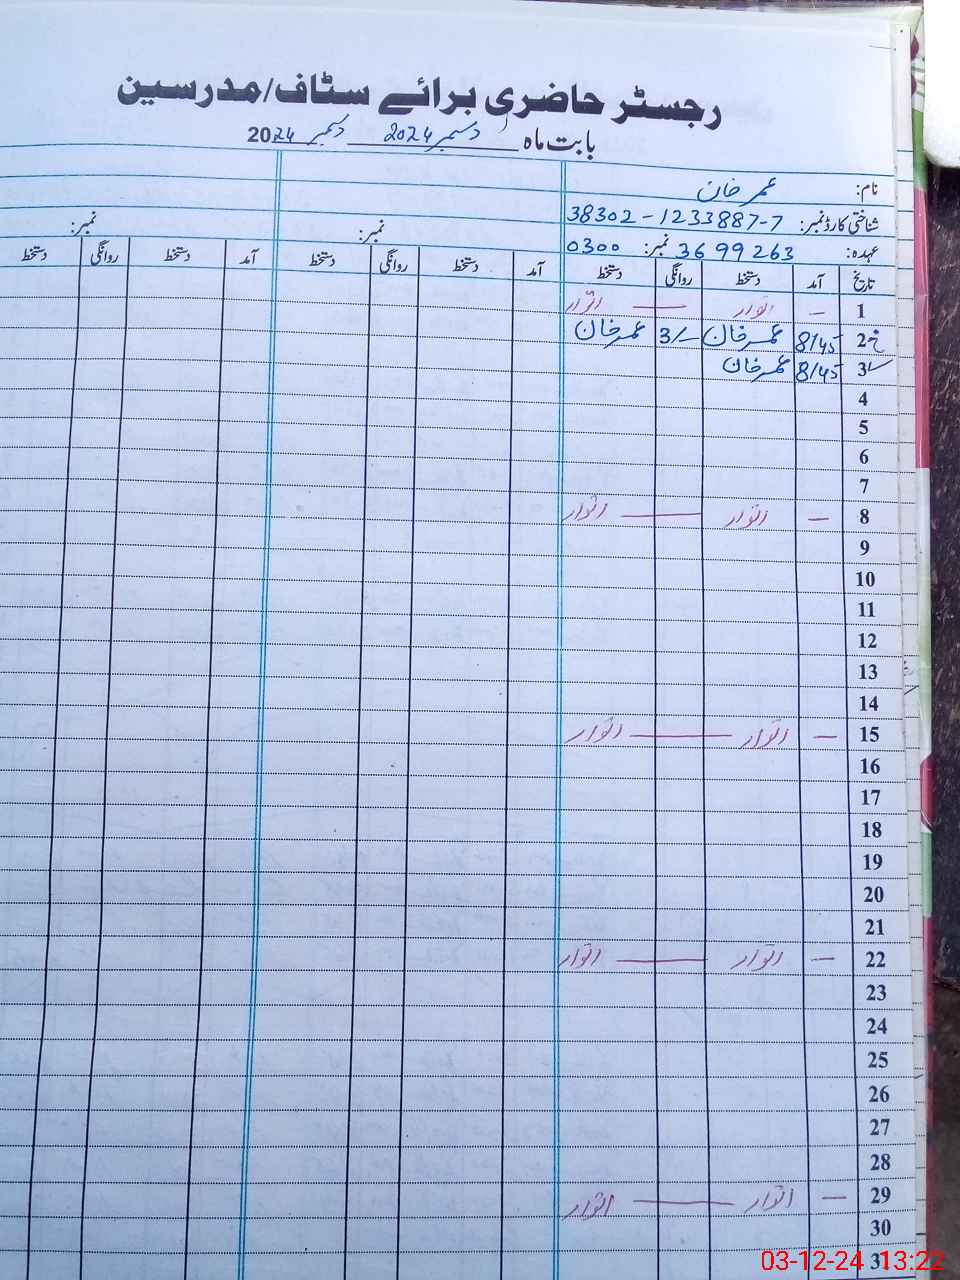 رجسٹر حاضری برائے سٹاف/مدرسین
بابت ماہ دسمبر 2024 دسمبر 2024
نام: عمر خان
شناختی کارڈ نمبر: 38302-1233887-7
عہدہ: 3699263 نمبر: 0300
نمبر:
نمبر:
تاریخ آمد دستخط روانگی دستخط آمد دستخط روانگی دستخط آمد دستخط روانگی دستخط
1 – اتوار — اتوار
2 8/45 عمر خان 3/- عمر خان
3 8/45 عمر خان
4
5
6
7
8 – اتوار — اتوار
9
10
11
12
13
14
15 – اتوار — اتوار
16
17
18
19
20
21
22 – اتوار — اتوار
23
24
25
26
27
28
29 – اتوار — اتوار
30
03-12-24 13:22